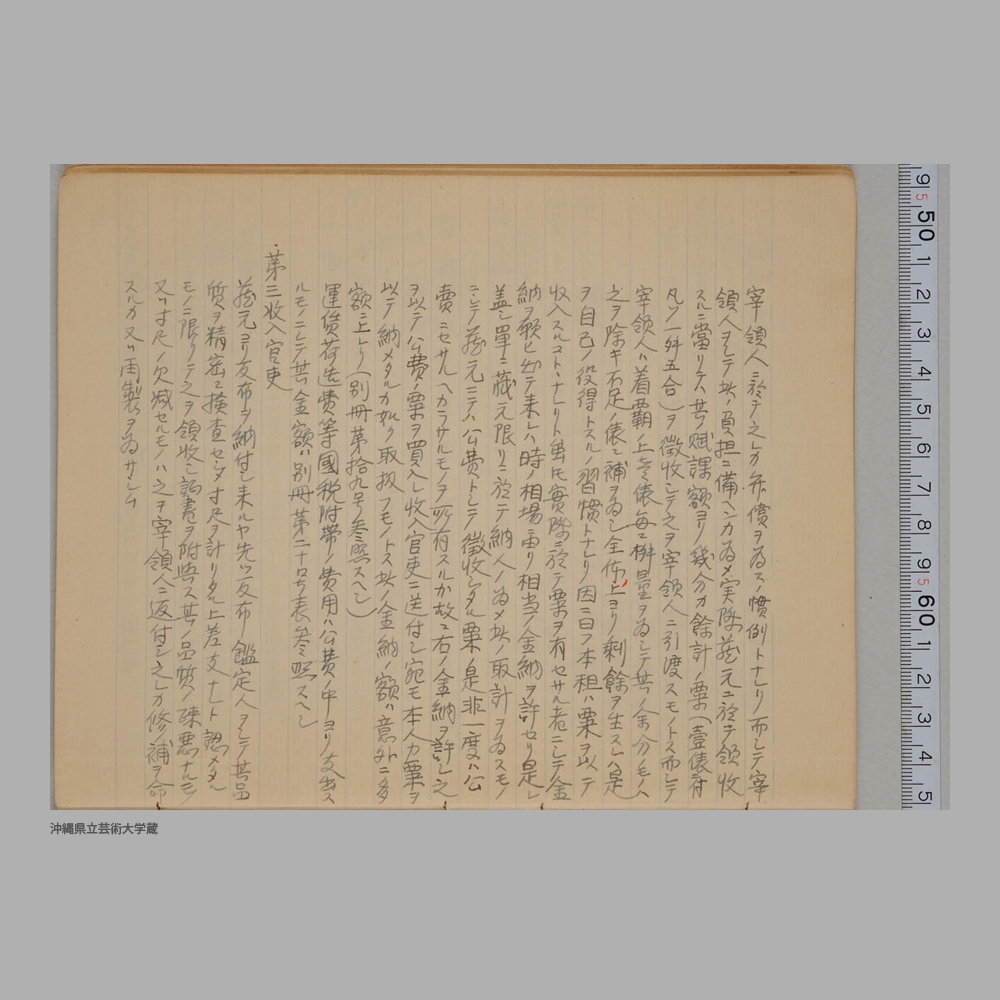 宰領人ニ於テ之レカ弁償ヲ為スノ慣例トナレリ而シテ宰
領人ヲシテ此ノ負担ニ備ヘンカ為メ実際蔵元ニ於テ領収
スルニ當リテハ其ノ賦課額ヨリ幾分カ餘計ノ粟(壹俵ニ付
凡ソ一升五合)ヲ徴收シテ之ヲ宰領人ニ引渡スモノトス而シテ
宰領人ハ着覇ノ上各俵毎ニ桝量ヲ為シテ其ノ余分ノモノハ
之ヲ除キ不足ノ俵ニ補ヲ為シ全体上ヨリ剰餘ヲ生スレハ是
ヲ自己ノ役得トスルノ習慣トナレリ因ニ曰フ本租ハ粟ヲ以テ
收入スルコトトナレリト雖モ實際ニ於テ粟ヲ有セサル者ニシテ金
納ヲ願ヒ出テ来レハ時ノ相場ニ由リ相当ノ金納ヲ許セリ是レ
蓋シ単ニ蔵元限リニ於テ納人ノ為メ此ノ取計ヲ為スモノ
ニシテ蔵元ニテハ公費トシテ徴收シタル粟ノ是非一度ハ公
賣ニセサルヘカラサルモノヲ所有スルカ故ニ右ノ金納ヲ許シ之
ヲ以テ公費ノ粟ヲ買入レ收入官吏ニ送付シ宛モ本人カ粟ヲ
以テ納メタルカ如ク取扱フモノトス此ノ金納ノ額ハ意外ニ多
額ニ上レリ(別冊第拾九号参照スヘシ)
運賃荷造費等國税附帯ノ費用ハ公費ノ中ヨリ支出ス
ルモノニシテ其ノ金額ハ別冊第二十号表参照スヘシ
第三收入官吏
蔵元ヨリ反布ヲ納付シ来ルヤ先ツ反布ノ鑑定人ヲシテ其品
質ヲ精密ニ検査セシメ寸尺ヲ計リタル上差支ナシト認メタル
モノニ限リテ之ヲ領收シ証書ヲ附与ス其ノ品質ノ疎悪ナルモノ
又ハ寸尺ノ欠減セルモノハ之ヲ宰領人ニ返付シ之レカ修補ヲ命
スルカ又ハ再製ヲ為サシム
沖縄県立芸術大学蔵
9 50 1 2 3 4 5 6 7 8 9 60 1 2 3 4 5